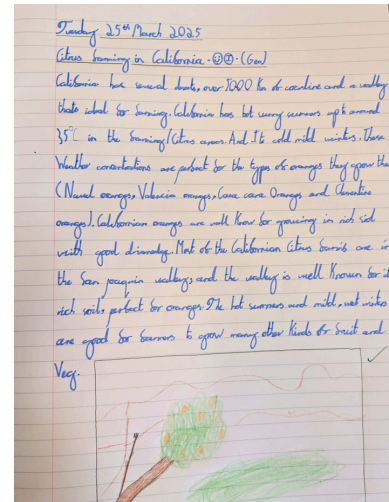 Tuesday 25th March 2025
Citrus Farming in California - (Geo)
California has several climates, over 1000 Km of coastline and a valley
thats ideal for farming. California has hot sunny summers up to around
35°C in the farming/Citrus areas. And It cold mild winters. These
Weather are perfect for the types of oranges they grow there
(Navel orangs, Valencia oranges, Cara cara Orangs and Clementine
oranges). Californian oranges are well Know for growing in rich soil
with good drainadg. Most of the Californian Citrus farms are in
the San joaquin valley, and the valley is well Known for it
rich soil, perfect for oranges. The hot summers and mild, wet winters
are good for farmers to grow many other Kinds of fruit and
Veg.